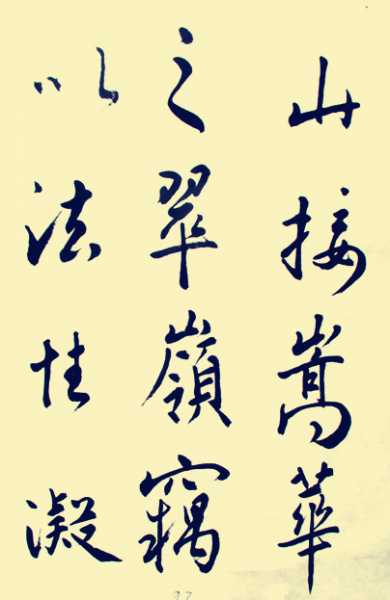 山接嵩華
之翠嶺竊
以法性凝